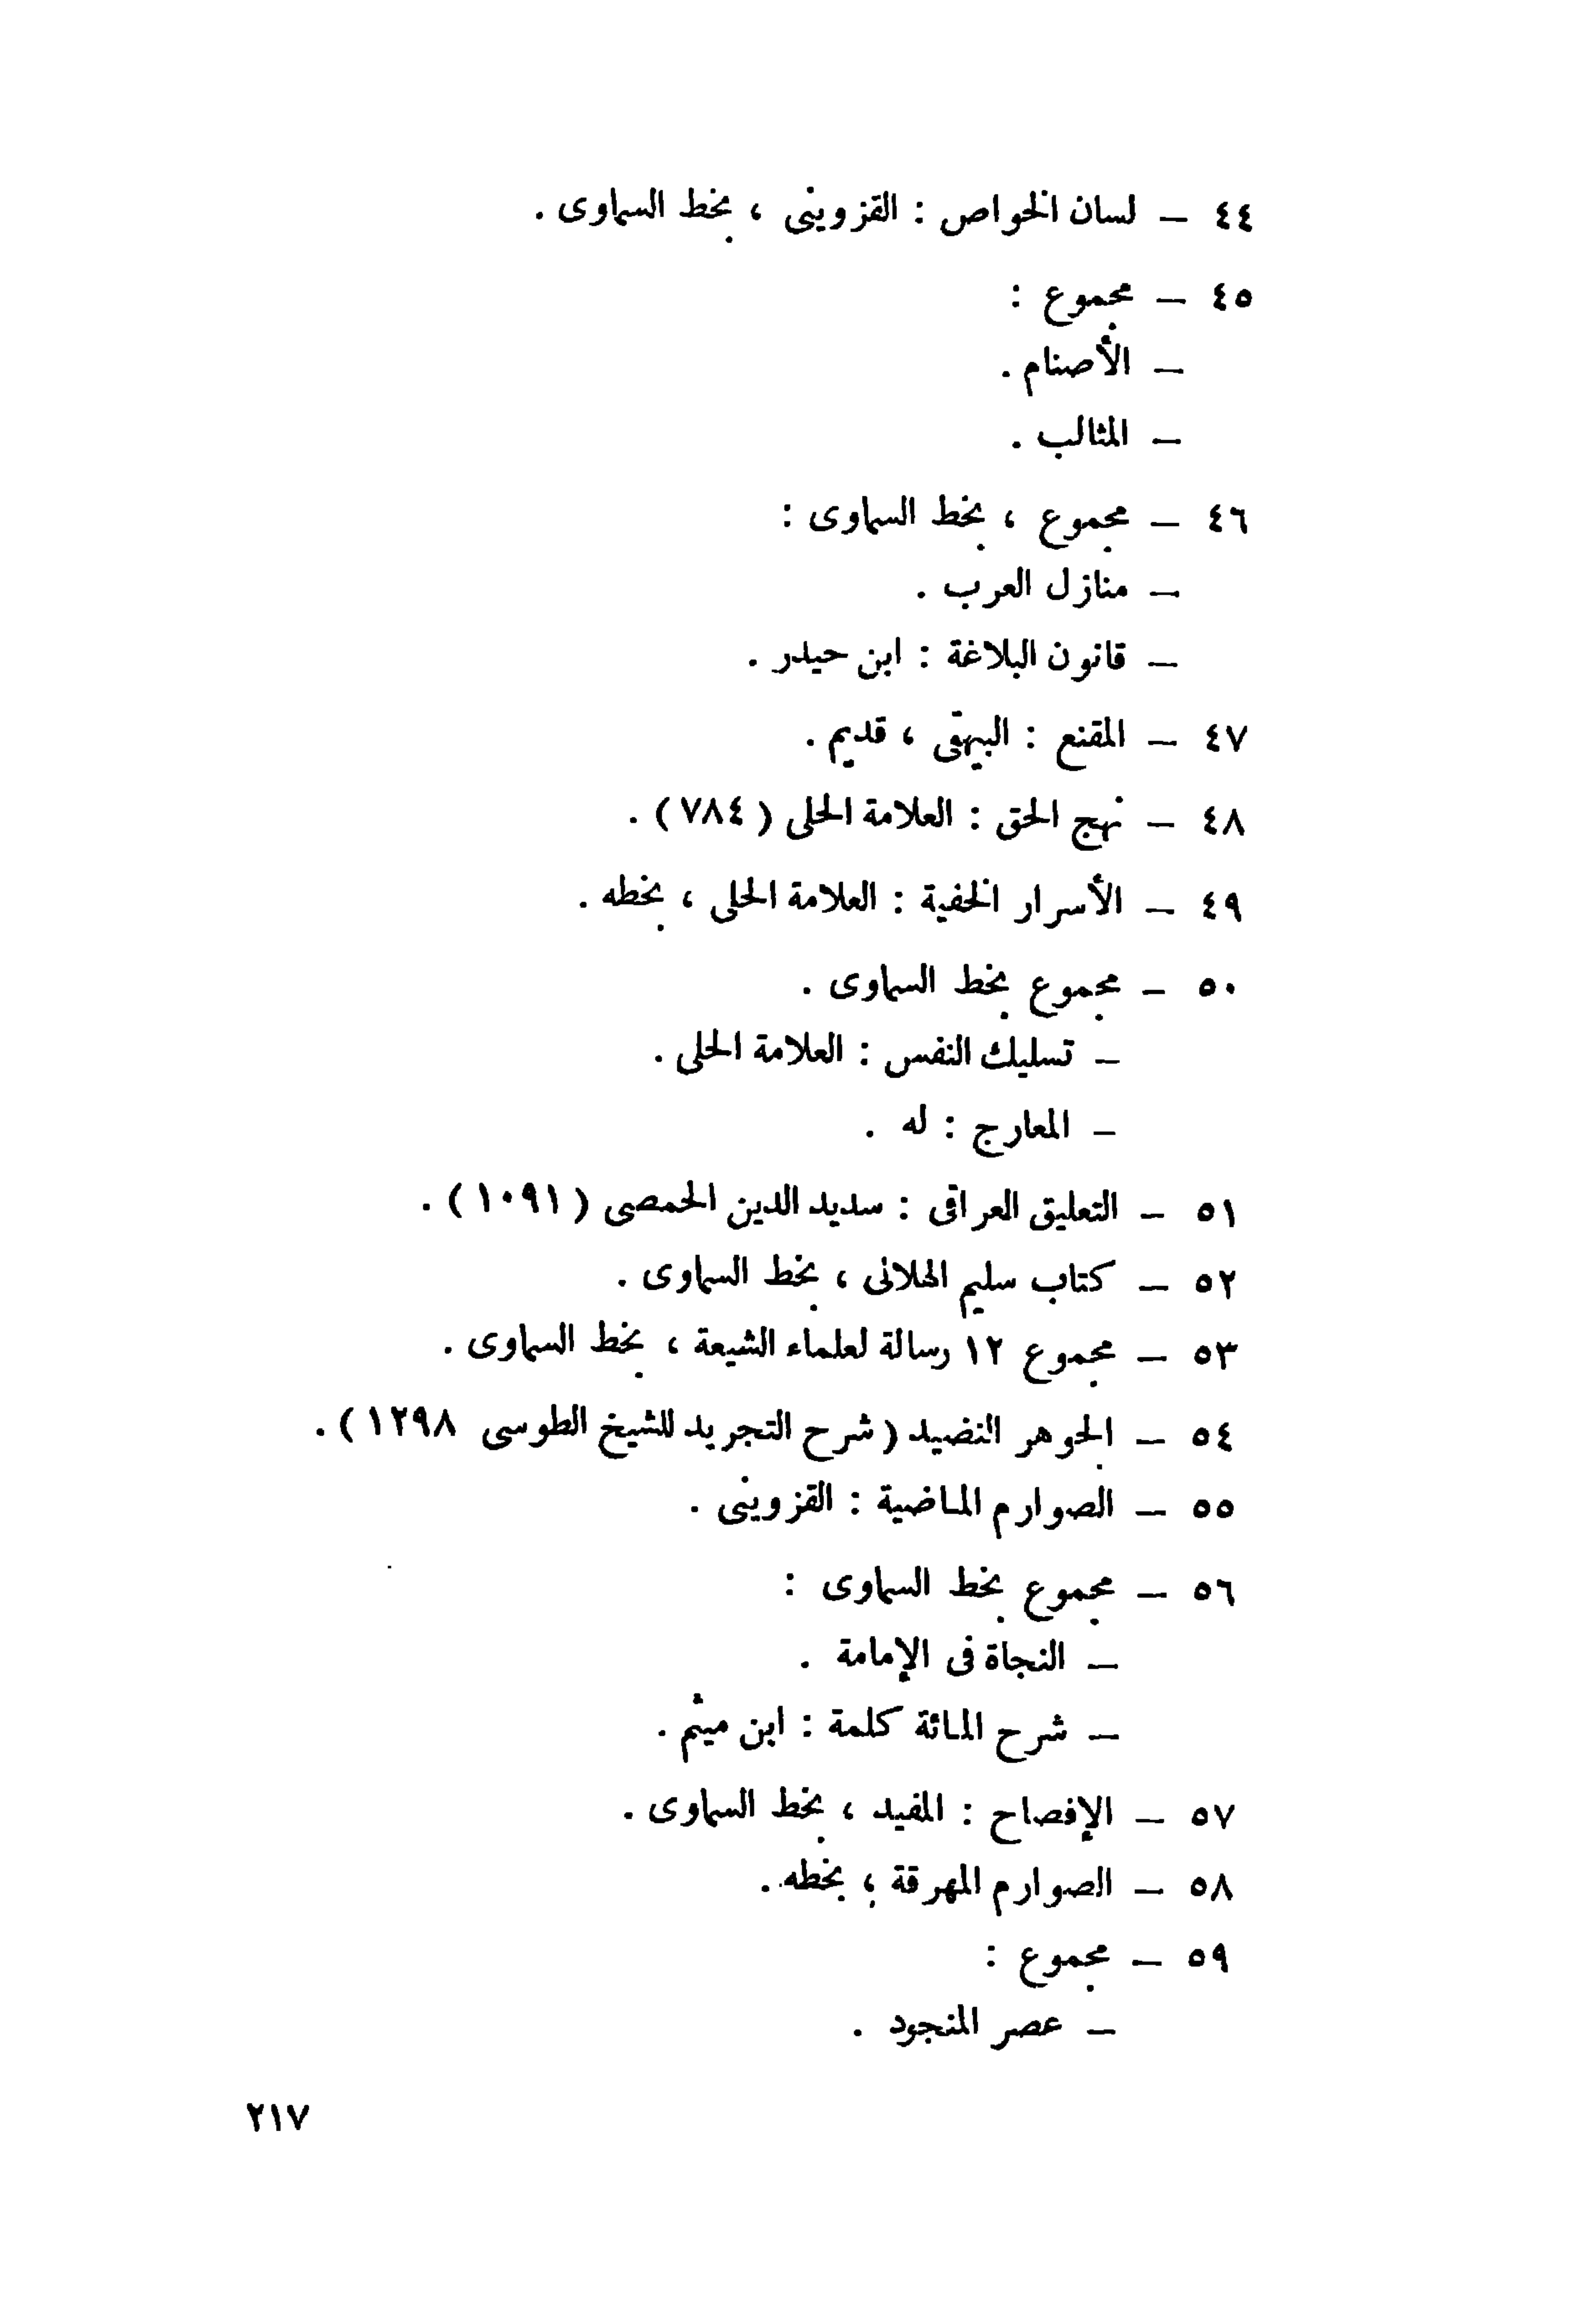 ٤٤ – لسان الخواص : القزوينى ، بخط السماوى .
٤٥ – مجموع :
– الأصنام .
– المثالب .
٤٦ – مجموع ، بخط السماوى :
– منازل العرب .
– قانون البلاغة : ابن حيدر .
٤٧ – المقنع : البيهقى ، قديم .
٤٨ – نهج الحق : العلامة الحلى ( ٧٨٤ ) .
٤٩ – الأسرار الخفية : العلامة الحلى ، بخطه .
٥٠ – مجموع بخط السماوى .
– تسليك النفس : العلامة الحلى .
– المعارج : له .
٥١ – التعليق العراقى : سديد الدين الحمصى ( ١٠٩١ ) .
٥٢ – كتاب سليم الهلالى ، بخط السماوى .
٥٣ – مجموع ١٢ رسالة لعلماء الشيعة ، بخط السماوى .
٥٤ – الجوهر النضيد ( شرح التجريد للشيخ الطوسى ١٢٩٨ ) .
٥٥ – الصوارم الماضية : القزوينى .
٥٦ – مجموع بخط السماوى :
– النجاة فى الإمامة .
– شرح المائة كلمة : ابن ميثم .
٥٧ – الإفصاح : المفيد ، بخط السماوى .
٥٨ – الصوارم المهرقة ، بخطه .
٥٩ – مجموع :
– عصر المنجود .
٢١٧